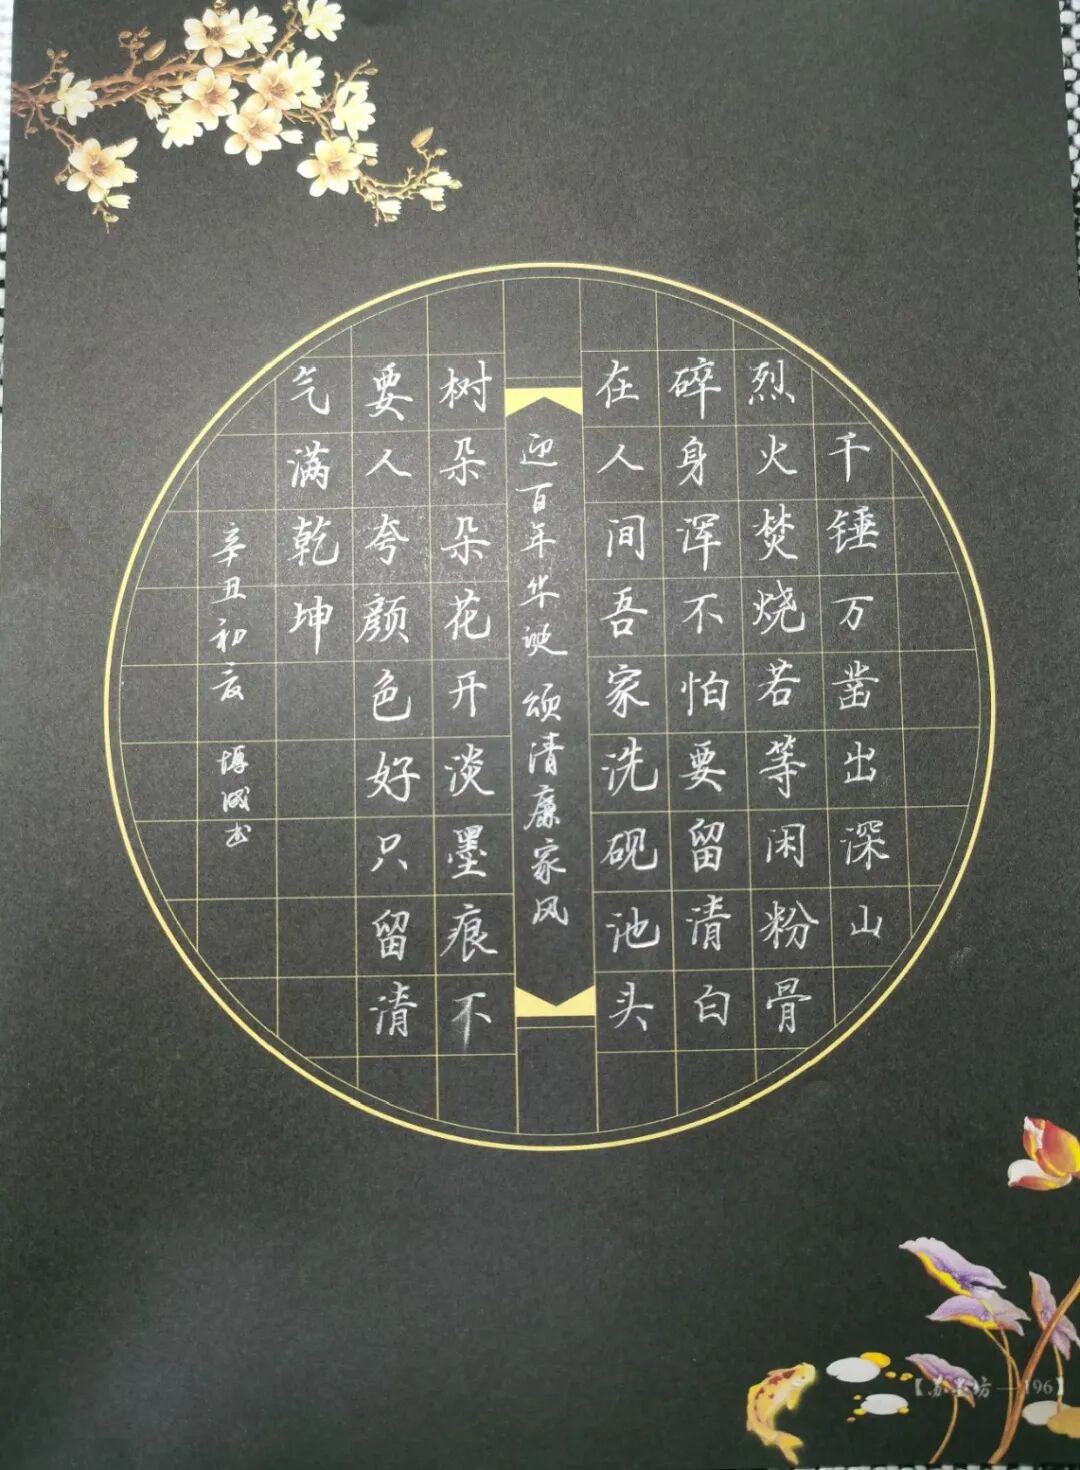 千锤万凿出深山
烈火焚烧若等闲粉骨
碎身浑不怕要留清白
在人间吾家洗砚池头
迎百年华诞 颂清廉家风
树朵朵花开淡墨痕不
要人夸颜色好只留清
气满乾坤
辛丑初夏 博成书
坊—196】